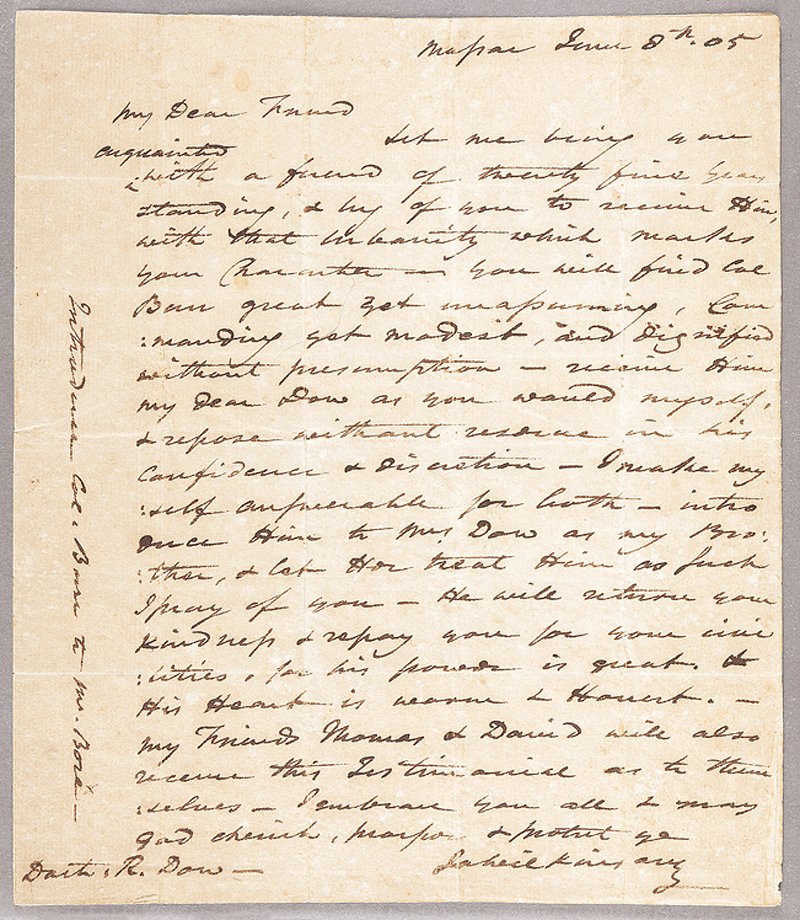 Massac June 8th. 05
My Dear Friend
Let me bring you
acquainted
with a friend of twenty five years
standing, & beg of you to receive Him,
with that Urbanity which marks
your Character — you will find Col
Burr great yet unassuming, Com
:manding yet modest, and dignified
without presumption — receive Him
my dear Dow as you would myself,
& repose without reserve in his
confidence & discretion — I make my
:self answerable for both — intro
duce Him to Mrs. Dow as my Bro:
:ther, & let Her treat Him as such
I pray of you — He will return your
kindness & repay you for your civi
:lities, for his power is great. &
His Heart is warm & Honest. —
my Friends Thomas & David will also
receive this Testimonial as to them
:selves — I embrace you all & may
God cherish, prosper & protect ye
Ja Wilkinson
Doctr: R. Dow —
Introduces Col: Burr to Mr. Boré —